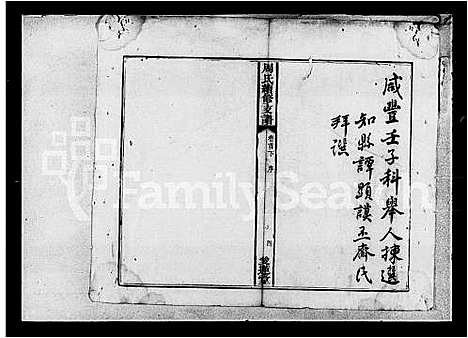 咸豐壬子科舉人揀選
知縣譚顯謨丕齋氏
拜譔
周氏續修支譜
卷首下 序
四
愛蓮堂
FamilySearch